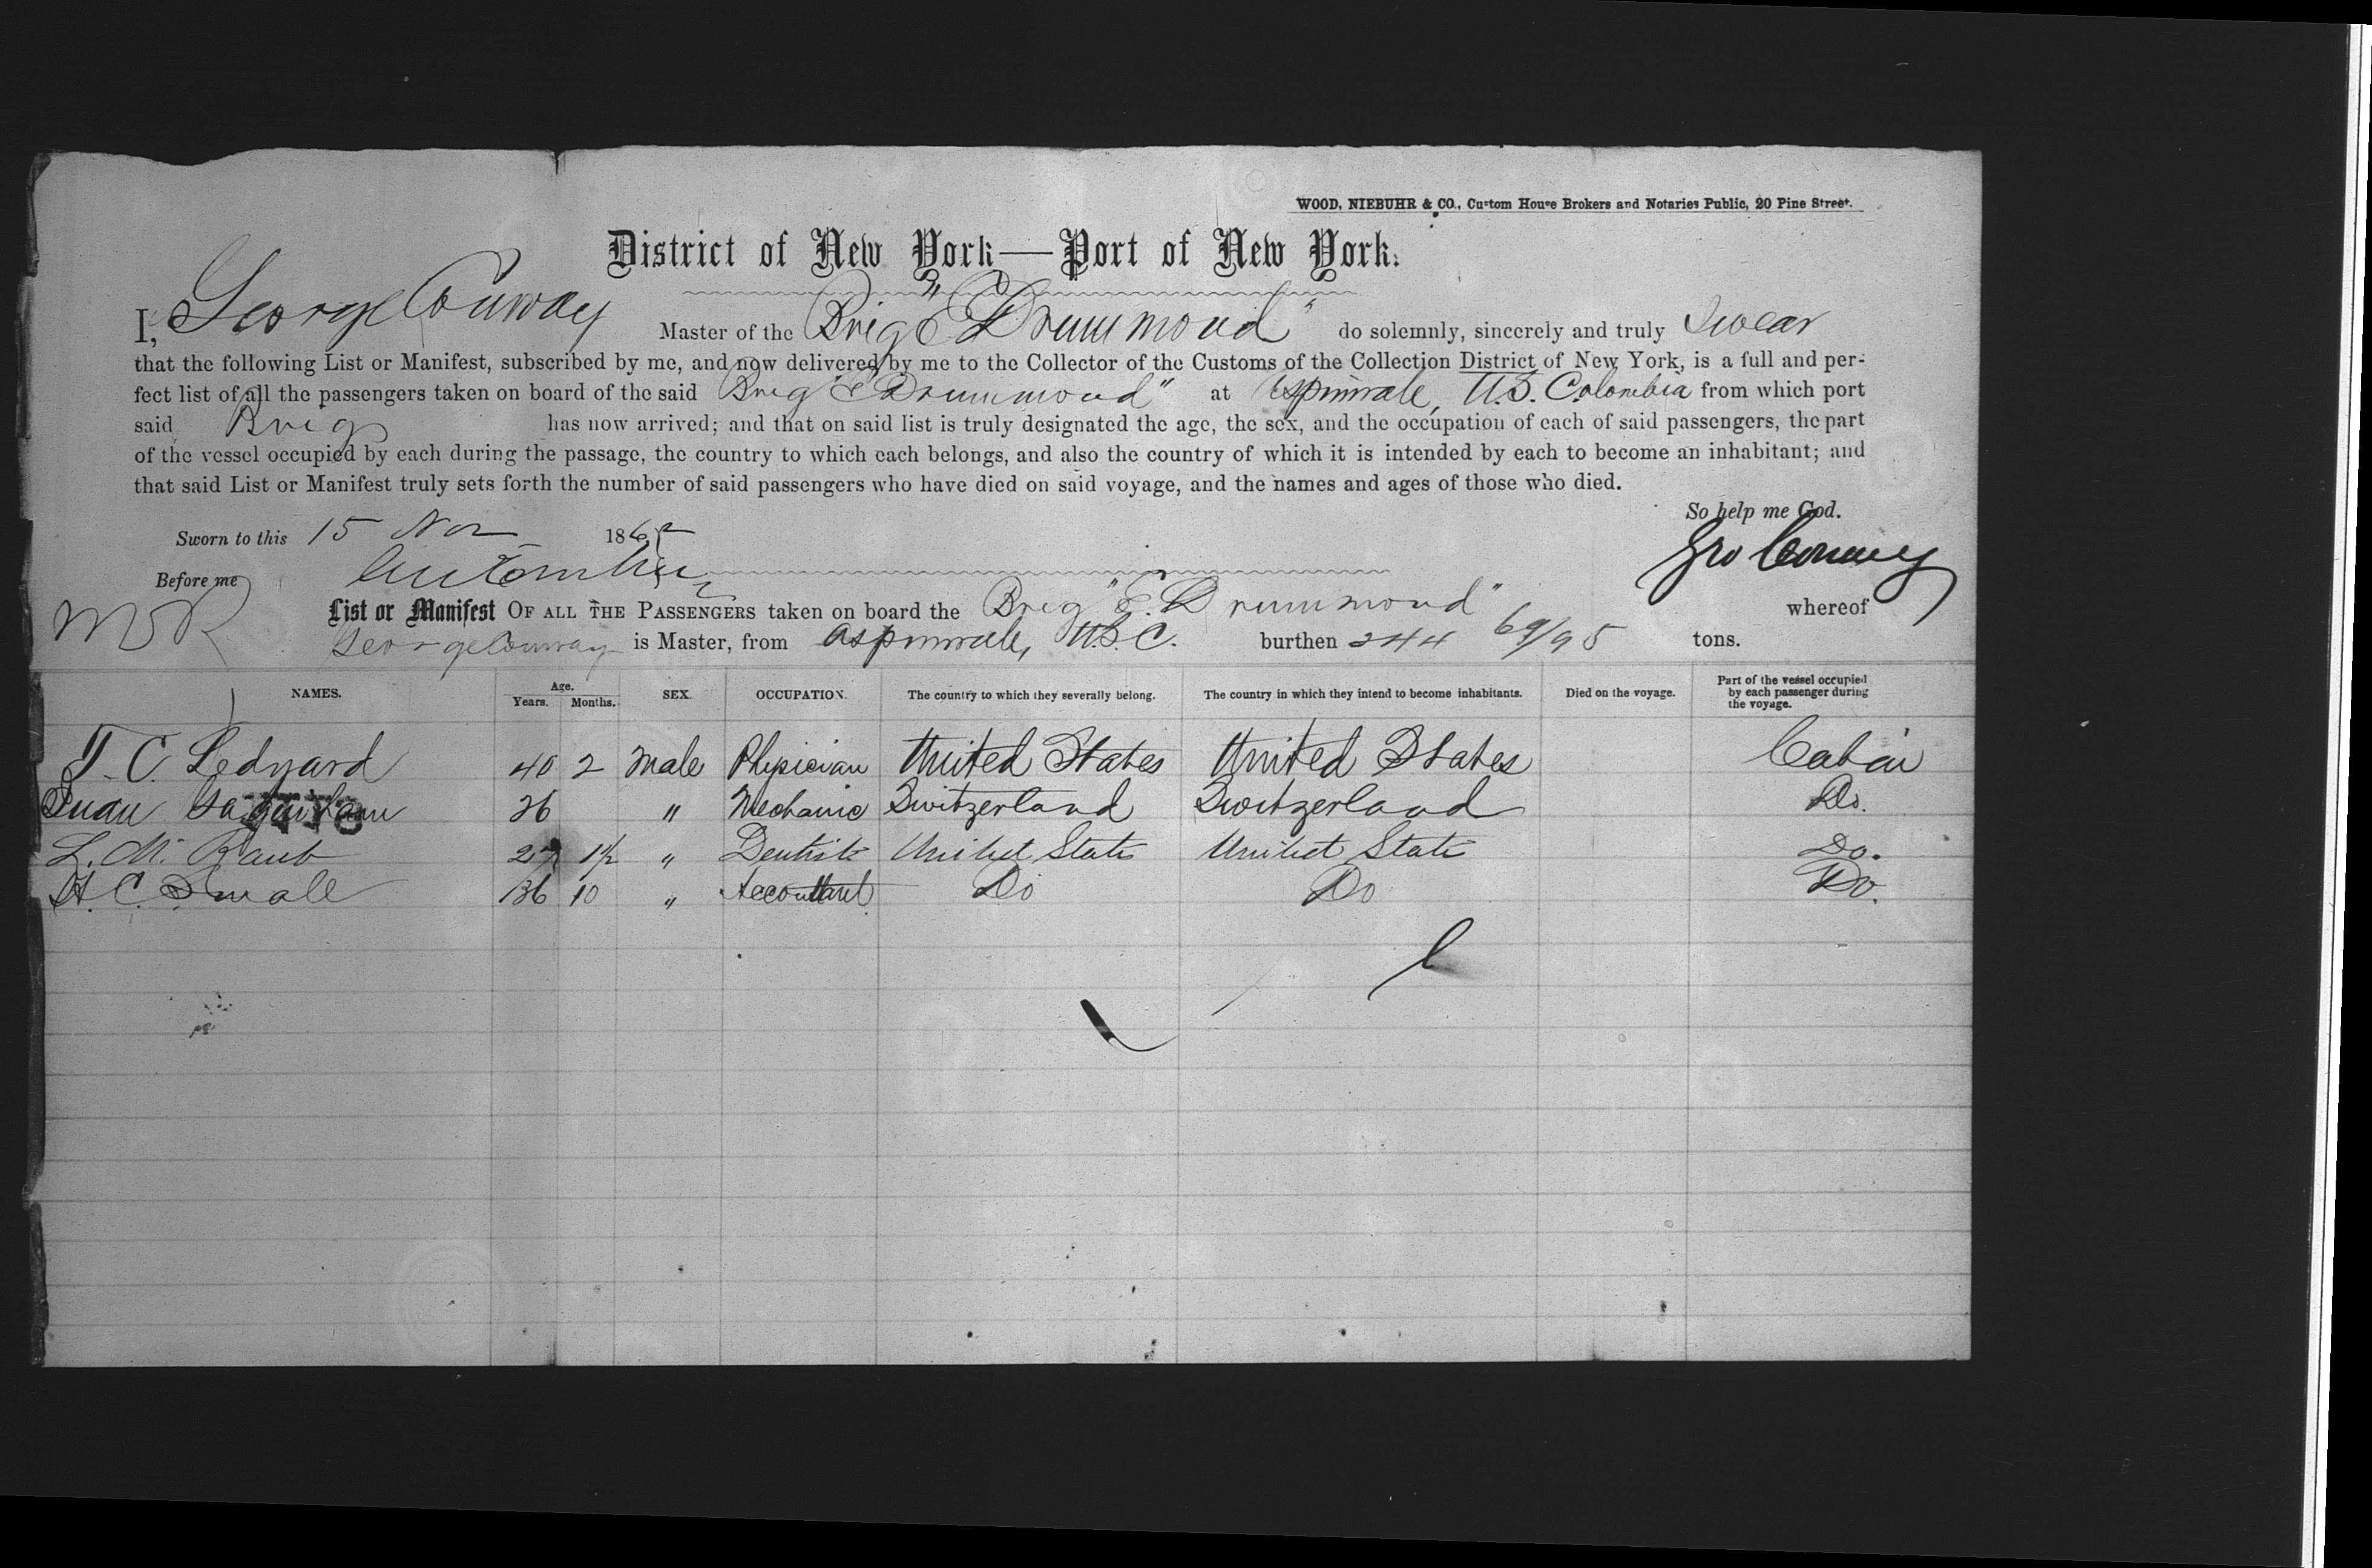 WOOD, NIEBUHR & CO., Custom House Brokers and Notaries Public, 20 Pine Street.
District of New York—Port of New York.
I, George Conway Master of the Brig "E Drummond" do solemnly, sincerely and truly Swear
that the following List or Manifest, subscribed by me, and now delivered by me to the Collector of the Customs of the Collection District of New York, is a full and per-
fect list of all the passengers taken on board of the said Brig "E Drummond" at Aspinwale, U.S. Colombia from which port
said Brig has now arrived; and that on said list is truly designated the age, the sex, and the occupation of each of said passengers, the part
of the vessel occupied by each during the passage, the country to which each belongs, and also the country of which it is intended by each to become an inhabitant; and
that said List or Manifest truly sets forth the number of said passengers who have died on said voyage, and the names and ages of those who died.
So help me God.
Sworn to this 15 Nov 186
Geo Conway
Before me
List or Manifest OF ALL THE PASSENGERS taken on board the Brig "E. Drummond" whereof
George Conway is Master, from Aspinwale, U.S.C. burthen 244 69/95 tons.
NAMES. Age. Years. Months. SEX. OCCUPATION. The country to which they severally belong. The country in which they intend to become inhabitants. Died on the voyage. Part of the vessel occupied by each passenger during the voyage.
T. C. Ledyard 40 2 Male Physician United States United States Cabin
Juan 26 " Mechanic Switzerland Switzerland Do.
L. M. Raub 27 1½ " Dentist United States United States Do.
H. C. Smale 36 10 " Accountant Do Do Do.